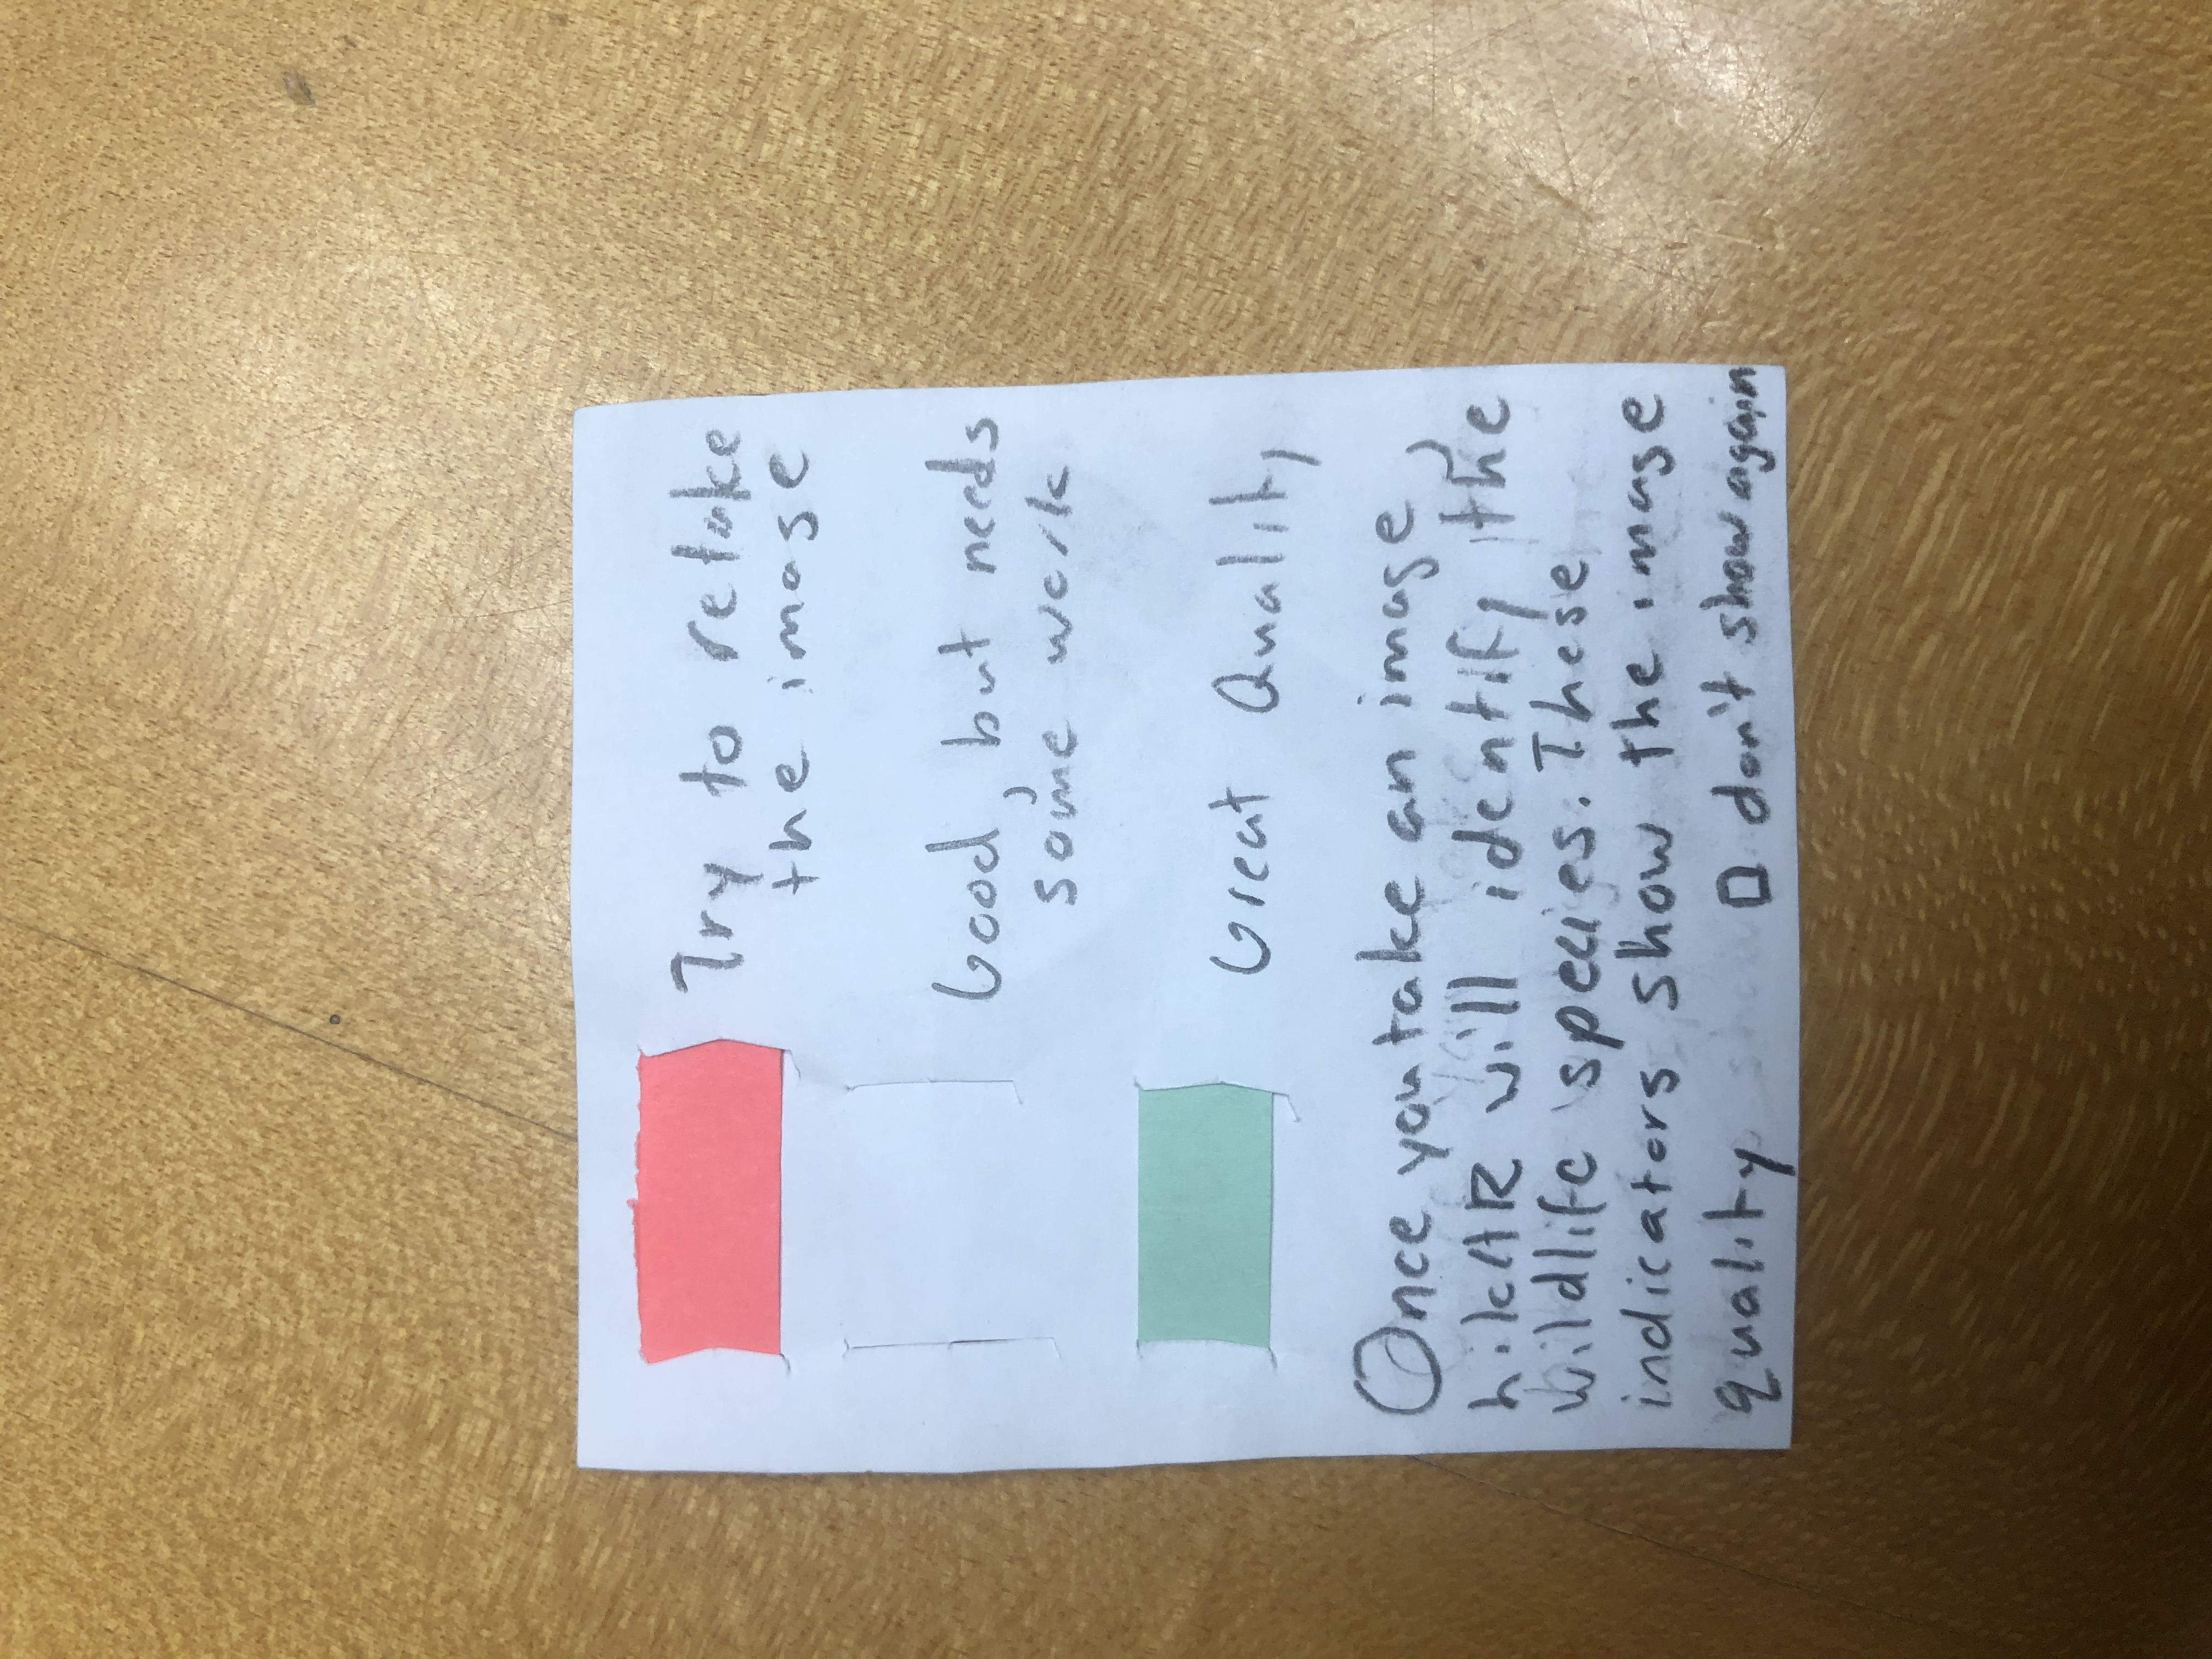 Try to retake
the image
Good, but needs
some work
Great Quality
Once you take an image,
hikAR will identify the
wildlife species. These
indicators show the image
quality □ don't show again